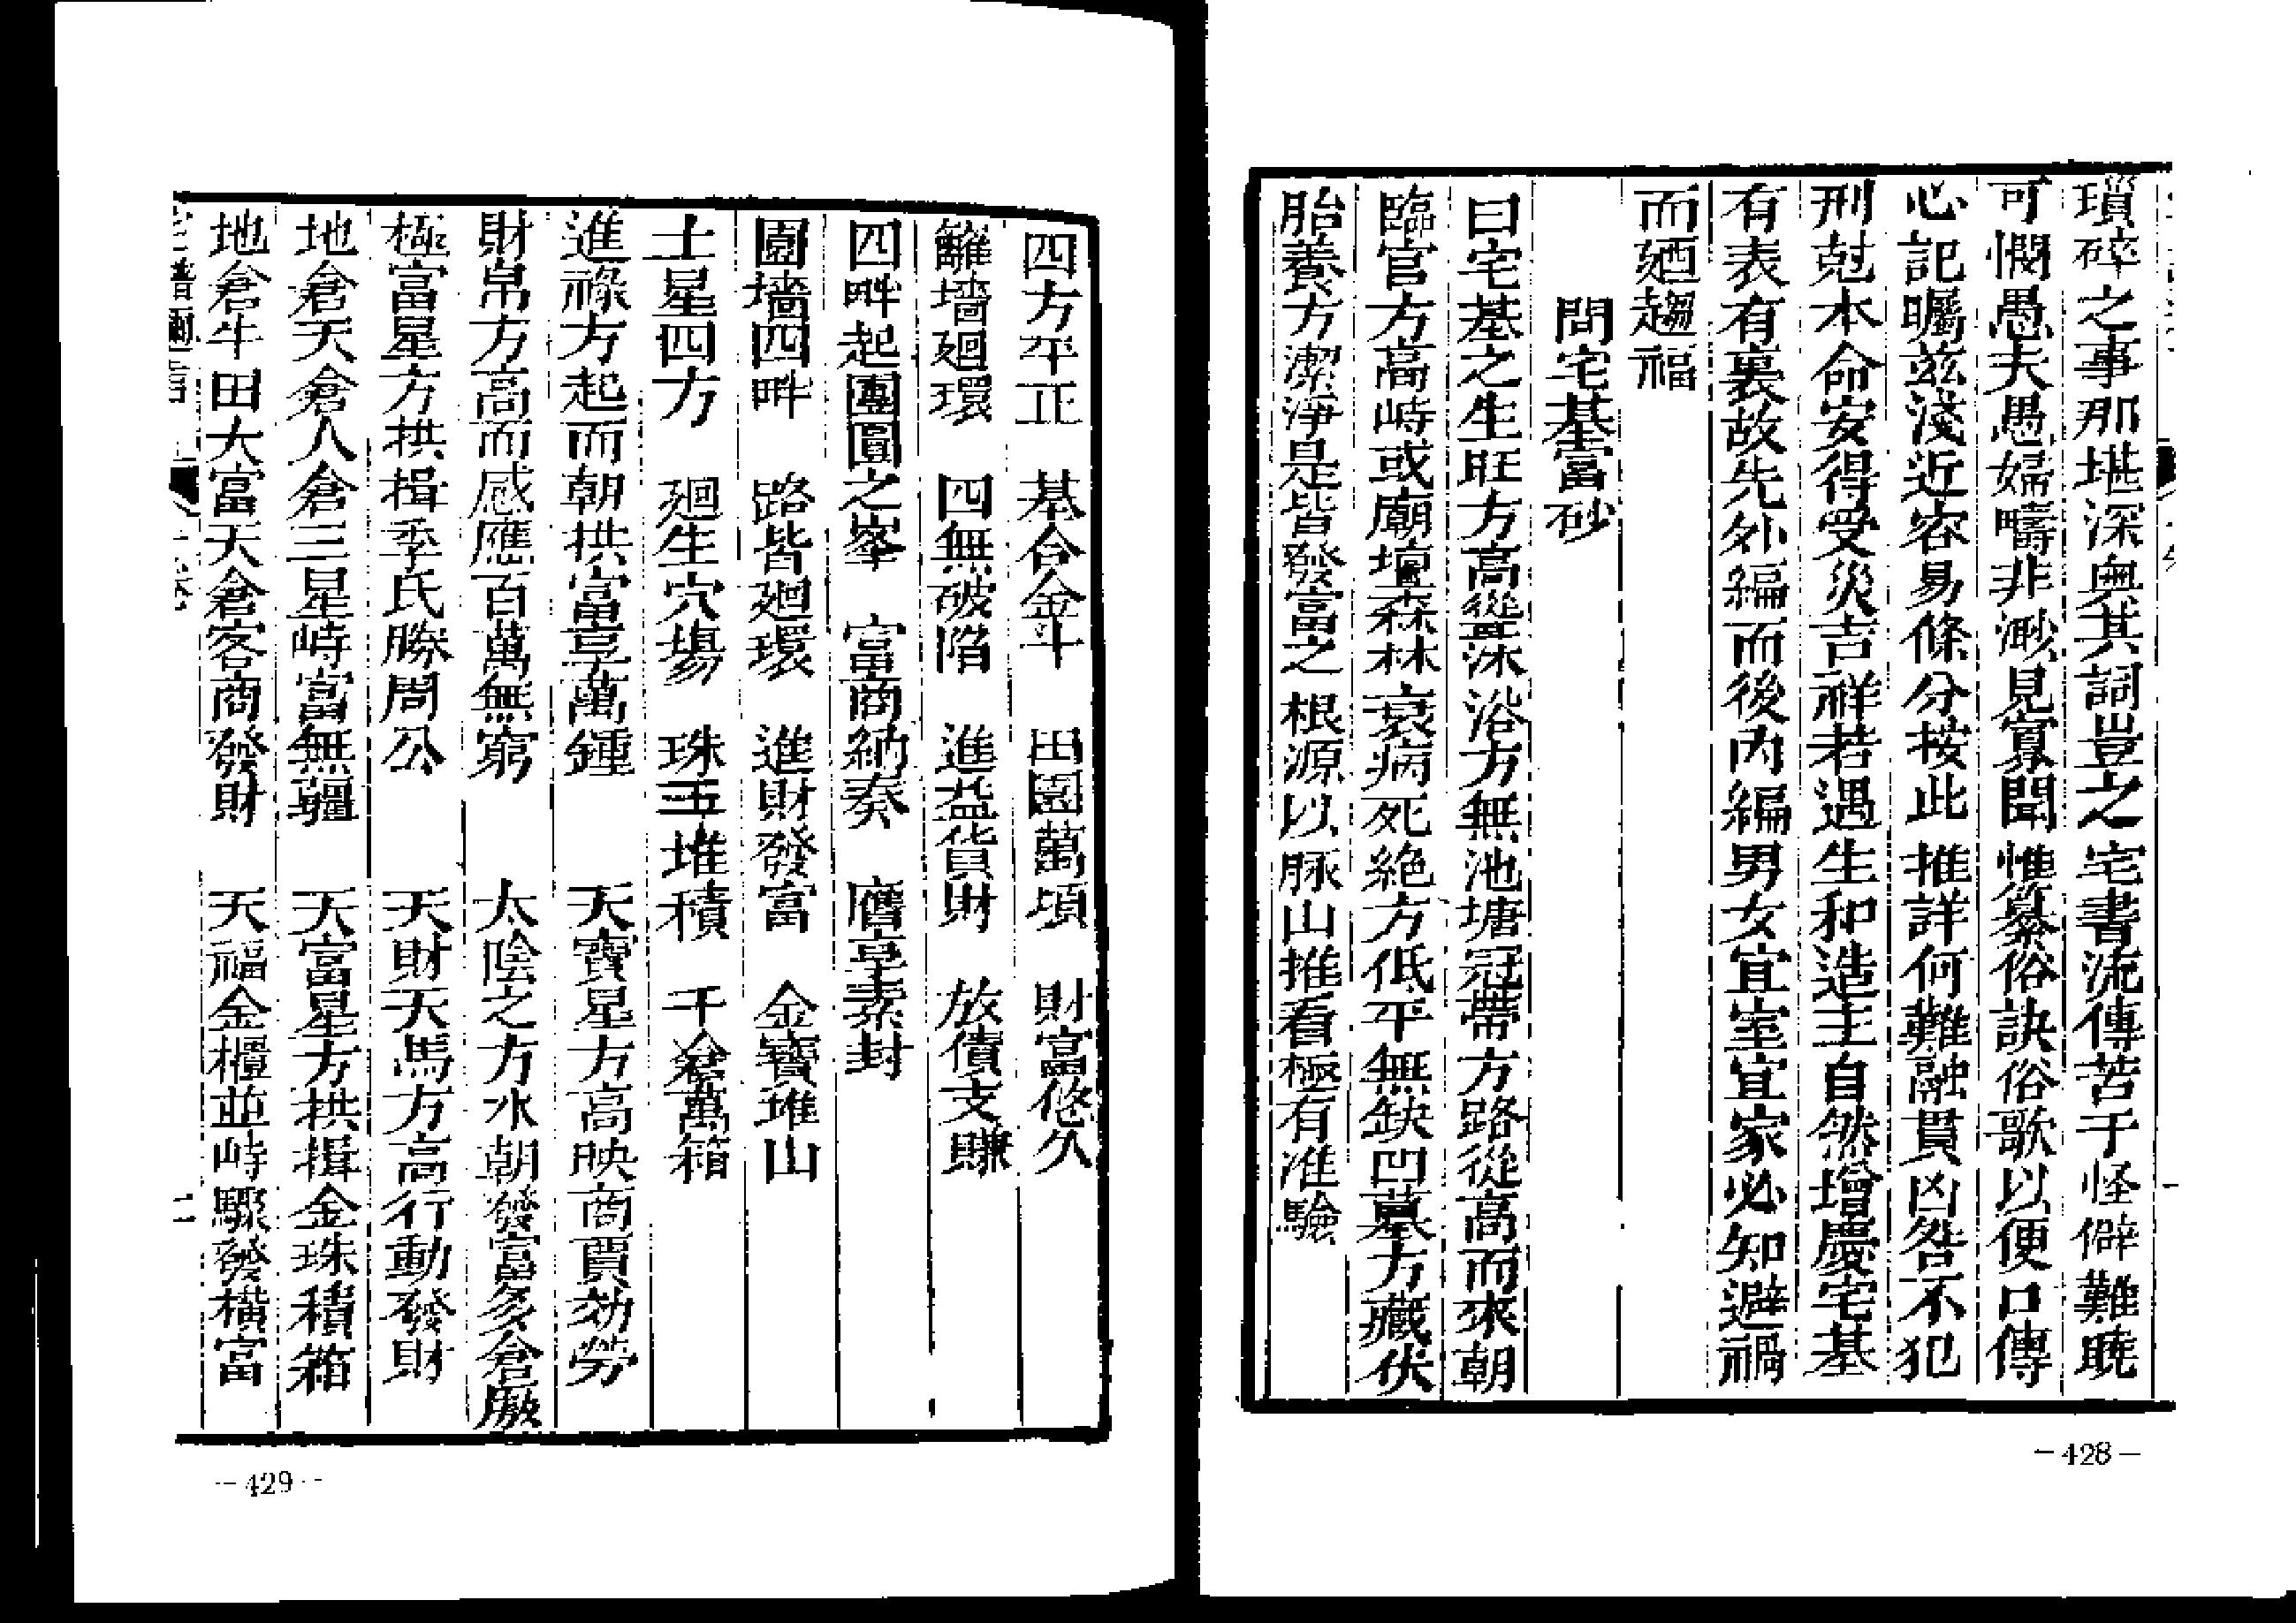 瑣碎之事那堪深奥其詞豈之宅書流傳苦于怪僻難曉
可憫愚夫愚婦疇非渺見寡聞惟纂俗訣俗歌以便口傳
心記矚茲淺近容易條分按此推詳何難融貫凶咎不犯
刑尅本命安得受災吉祥若遇生和造主自然增慶宅基
有表有裏故先外編而後内編男女宜室宜家必知避禍
而廼趨福
問宅基富砂
曰宅基之生旺方高從深浴方無池塘冠帶方路從高而來朝
臨官方高峙或廟壇森林衰病死絶方低平無缺凹墓方藏伏
胎養方潔淨是皆發富之根源以脉山推看極有准驗
－428－
四方平正　基合金斗　田園萬頃　財富悠久
籬墻廻環　四無破陷　進益貨財　放債支賺
四畔起團圓之峯　富商納奏　膺享素封
園墻四畔　路皆廻環　進財發富　金寶堆山
土星四方　廻生穴塲　珠玉堆積　千倉萬箱
進祿方起而朝拱富享萬鍾　天寶星方高映商賈効勞
財帛方高而感應百萬無窮　太陰之方水朝發富多倉廒
極富星方拱揖季氏勝周公　天財天馬方高行動發財
地倉天倉人倉三星峙富無疆　天富星方拱揖金珠積箱
地倉牛田大富天倉客商發財　天福金櫃並峙驟發橫富
宅譜邇言
二
－429－